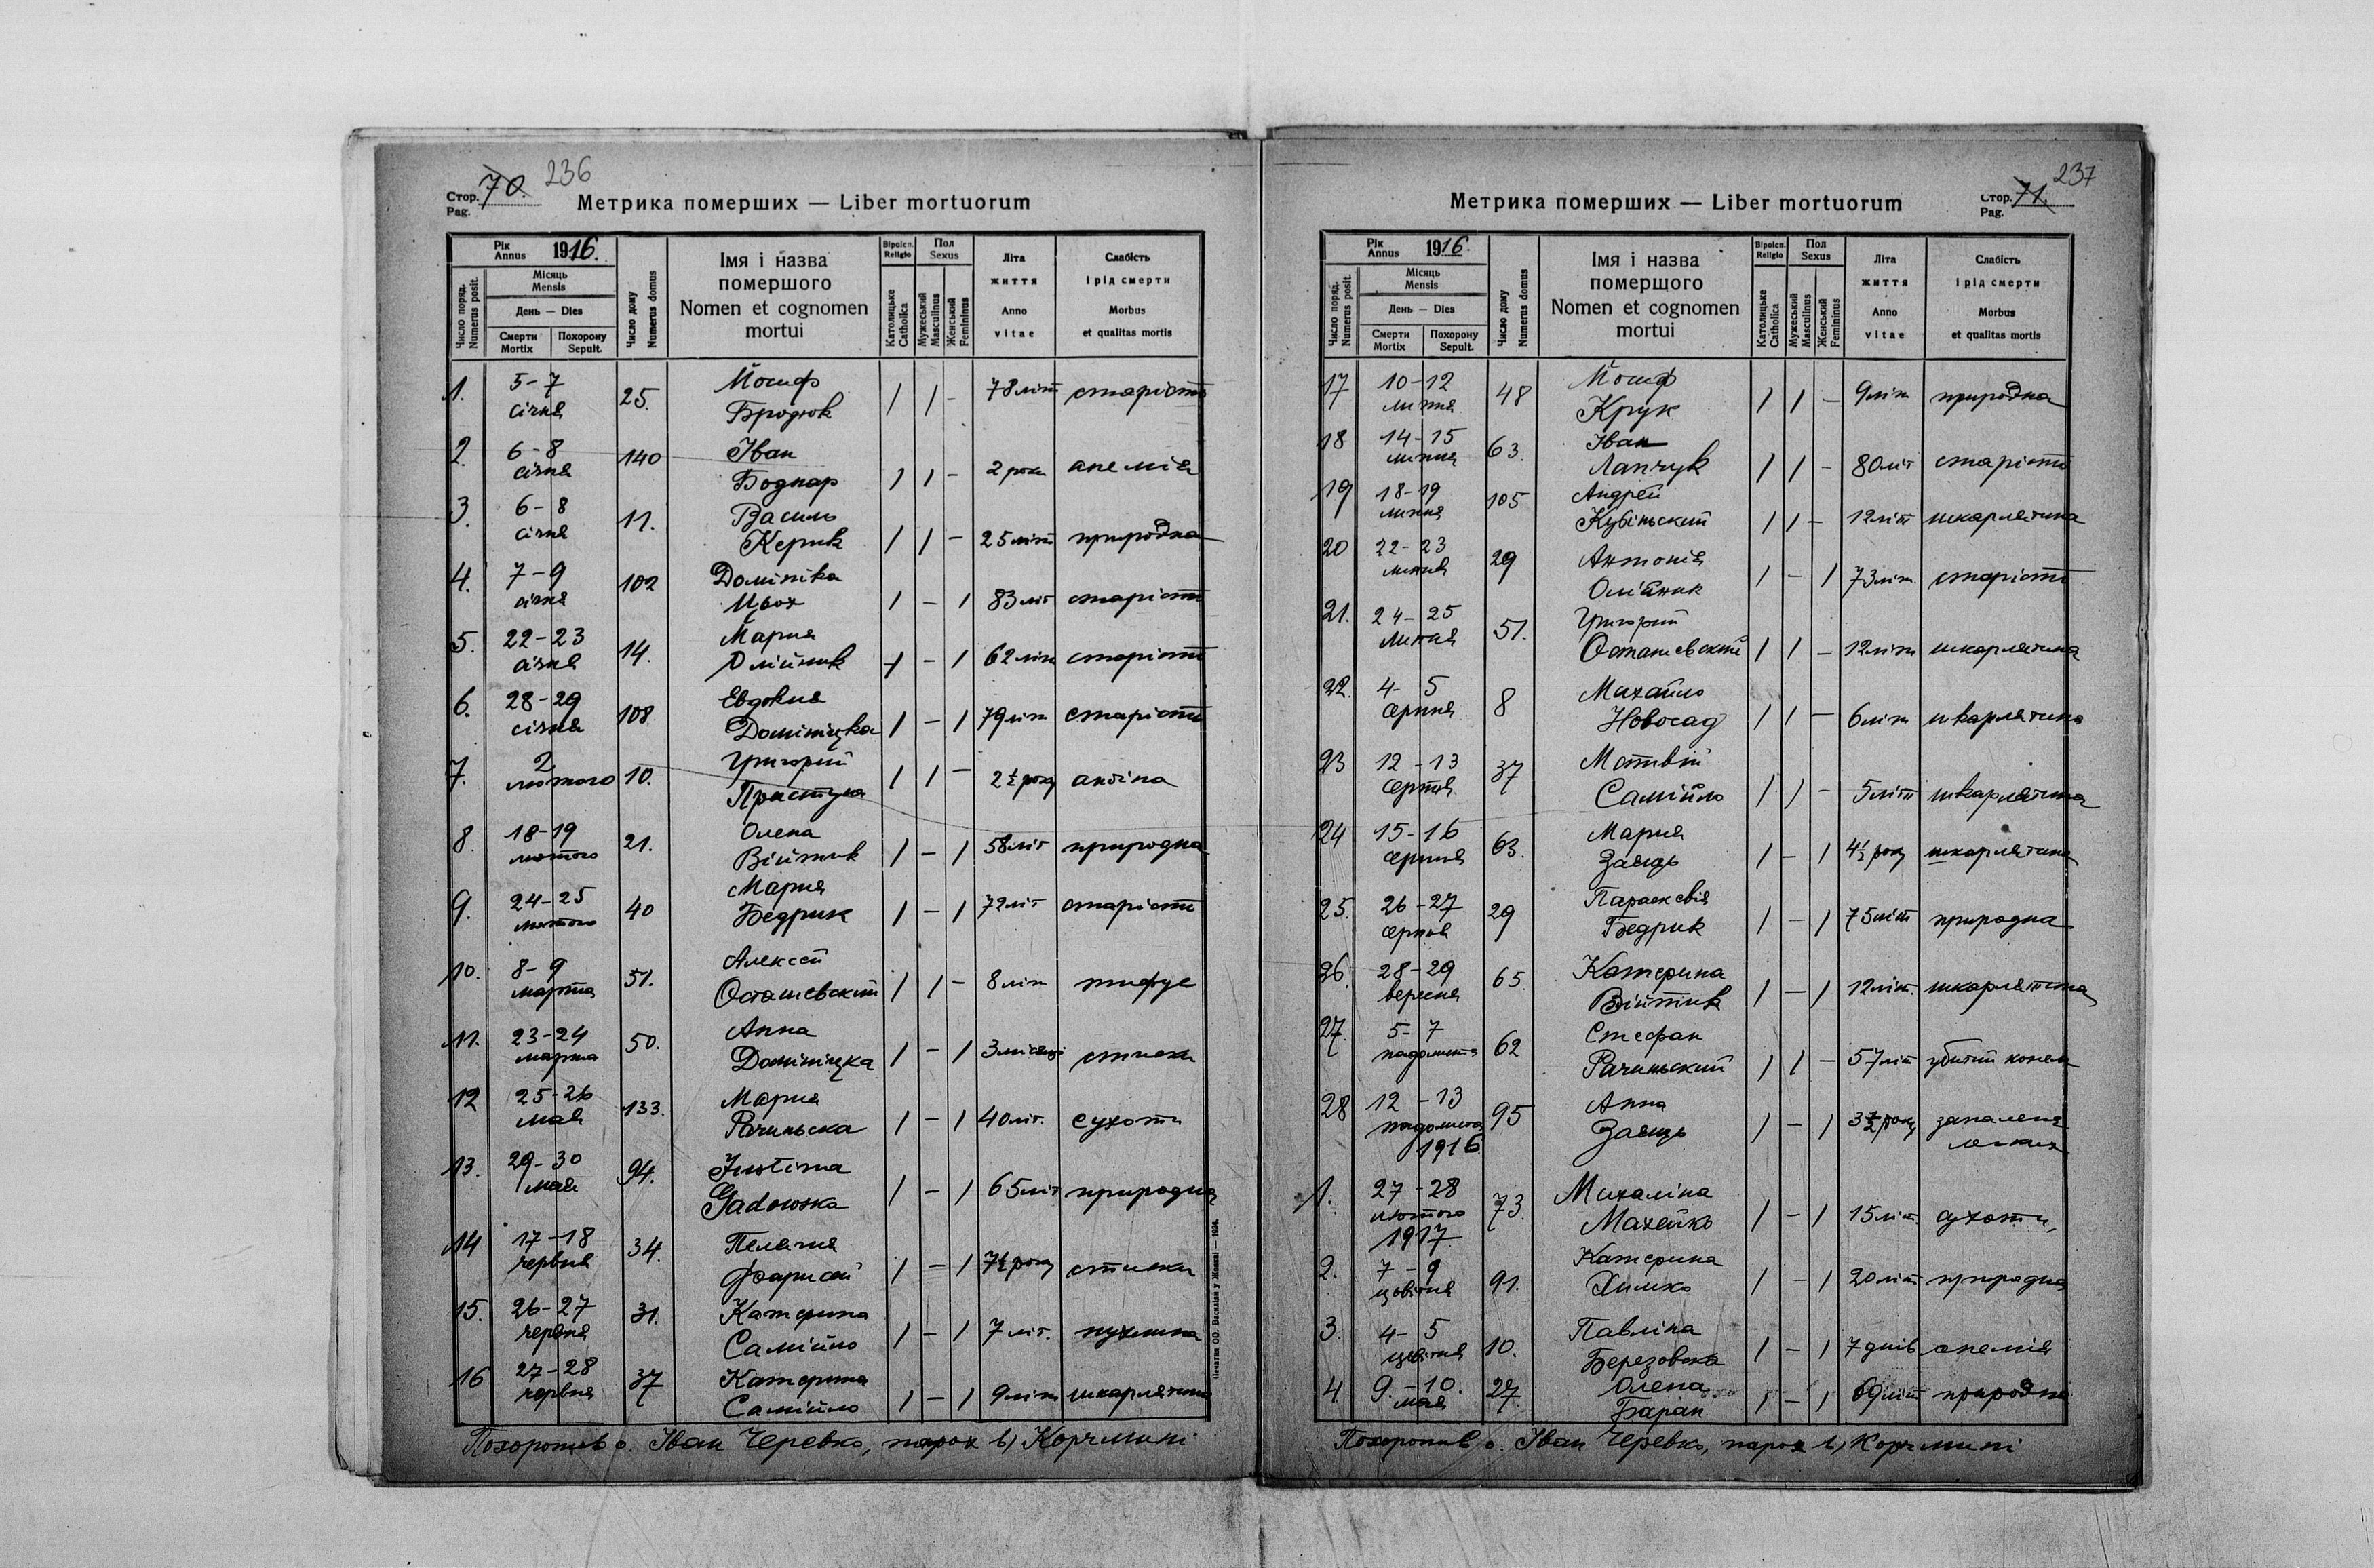 Стор. 70. 236
Pag.
Метрика померших — Liber mortuorum
Рік Annus 1916.
Число поряд. Numerus posit.
Місяць Mensis
День — Dies
Смерти Mortix
Похорону Sepult.
Число дому Numerus domus
Імя і назва
помершого
Nomen et cognomen
mortui
Віроісп. Religio
Католицьке Catholica
Пол Sexus
Мужеський Masculinus
Женський Femininus
Літа
життя
Anno
vitae
Слабість
і рід смерти
Morbus
et qualitas mortis
1. 5-7 січня 25. Йосиф Бродюк 1 1 - 78 літ старість
2. 6-8 січня 140 Іван Боднар 1 1 - 2 роки анемія
3. 6-8 січня 11. Василь Керик 1 1 - 25 літ природна
4. 7-9 січня 102 Домініка Цьох 1 - 1 83 літ старість
5. 22-23 січня 14. Мария Олійник 1 - 1 62 літ старість
6. 28-29 січня 108 Евдокия Домініцка 1 - 1 79 літ старість
7. 2 лютого 10. Григорий Приступа 1 1 - 2½ року ангіна
8. 18-19 лютого 21. Олена Війтик 1 - 1 58 літ природна
9. 24-25 лютого 40 Мария Бедрик 1 - 1 72 літ старість
10. 8-9 марта 51. Алексей Осташевский 1 1 - 8 літ тифус
11. 23-24 марта 50. Анна Домініцка 1 - 1 3 місяці стиски
12 25-26 мая 133. Мария Рачиньска 1 - 1 40 літ. сухоти
13. 29-30 мая 94. Justina Gadowska 1 - 1 65 літ природна
14 17-18 червня 34. Пелагия Фарисей 1 - 1 7½ року стиски
15. 26-27 червня 31. Катерина Самійло 1 - 1 7 літ. пухлина
16 27-28 червня 37 Катерина Самійло 1 - 1 9 літ шкарлятина
Похоронив о. Іван Черевко, парох в Корчмині
Печатня ОО. Василіян у Жовкві — 1904.
Стор. 71. 237
Pag.
Метрика померших — Liber mortuorum
Рік Annus 1916.
Число поряд. Numerus posit.
Місяць Mensis
День — Dies
Смерти Mortix
Похорону Sepult.
Число дому Numerus domus
Імя і назва
помершого
Nomen et cognomen
mortui
Віроісп. Religio
Католицьке Catholica
Пол Sexus
Мужеський Masculinus
Женський Femininus
Літа
життя
Anno
vitae
Слабість
і рід смерти
Morbus
et qualitas mortis
17 10-12 липня 48 Йосиф Крук 1 1 - 9 літ природна
18 14-15 липня 63. Іван Лапчук 1 1 - 80 літ старість
19 18-19 липня 105 Андрей Кубіньский 1 1 - 12 літ шкарлятина
20 22-23 липня 29 Антонія Олійник 1 - 1 73 літ. старість
21. 24-25 липня 51. Григорий Осташевский 1 1 - 12 літ шкарлятина
22. 4-5 серпня 8 Михайло Новосад 1 1 - 6 літ шкарлятина
23 12-13 серпня 37 Матвій Самійло 1 1 - 5 літ шкарлятина
24 15-16 серпня 63. Мария Заяць 1 - 1 4½ року шкарлятина
25. 26-27 серпня 29 Параскевія Бедрик 1 - 1 75 літ природна
26. 28-29 вересня 65. Катерина Війтик 1 - 1 12 літ. шкарлятина
27. 5-7 падолиста 62 Стефан Рачиньский 1 1 - 57 літ убитий конем
28 12-13 падолиста 1916 95 Анна Заяць 1 - 1 3½ року запаленя легких
1. 27-28 лютого 1917 73. Михаліна Махейко 1 - 1 15 літ. сухоти
2. 7-9 цьвітня 91. Катерина Химко 1 - 1 20 літ природна
3. 4-5 цьвітня 10. Павліна Березовска 1 - 1 7 днів анемія
4 9.-10. мая 27. Олена Баран 1 - 1 69 літ природна
Похоронив о. Іван Черевко, парох в Корчмині